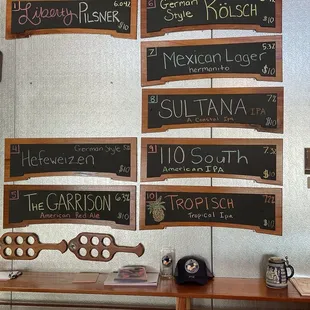 1
Liberty PILSNER
6.0%
4
German Style 5%
Hefeweizen
$10
5
6.3%
THE GARRISON
American Red Ale
$10
6
German
Style KÖLSCH
$10
7
5.3%
Mexican Lager
hermanito
$10
8
7%
SULTANA IPA
A Coastal IPA
$10
9
7.3%
110 South
American IPA
$10
10
7.2%
TROPISCH
Tropical Ipa
$10